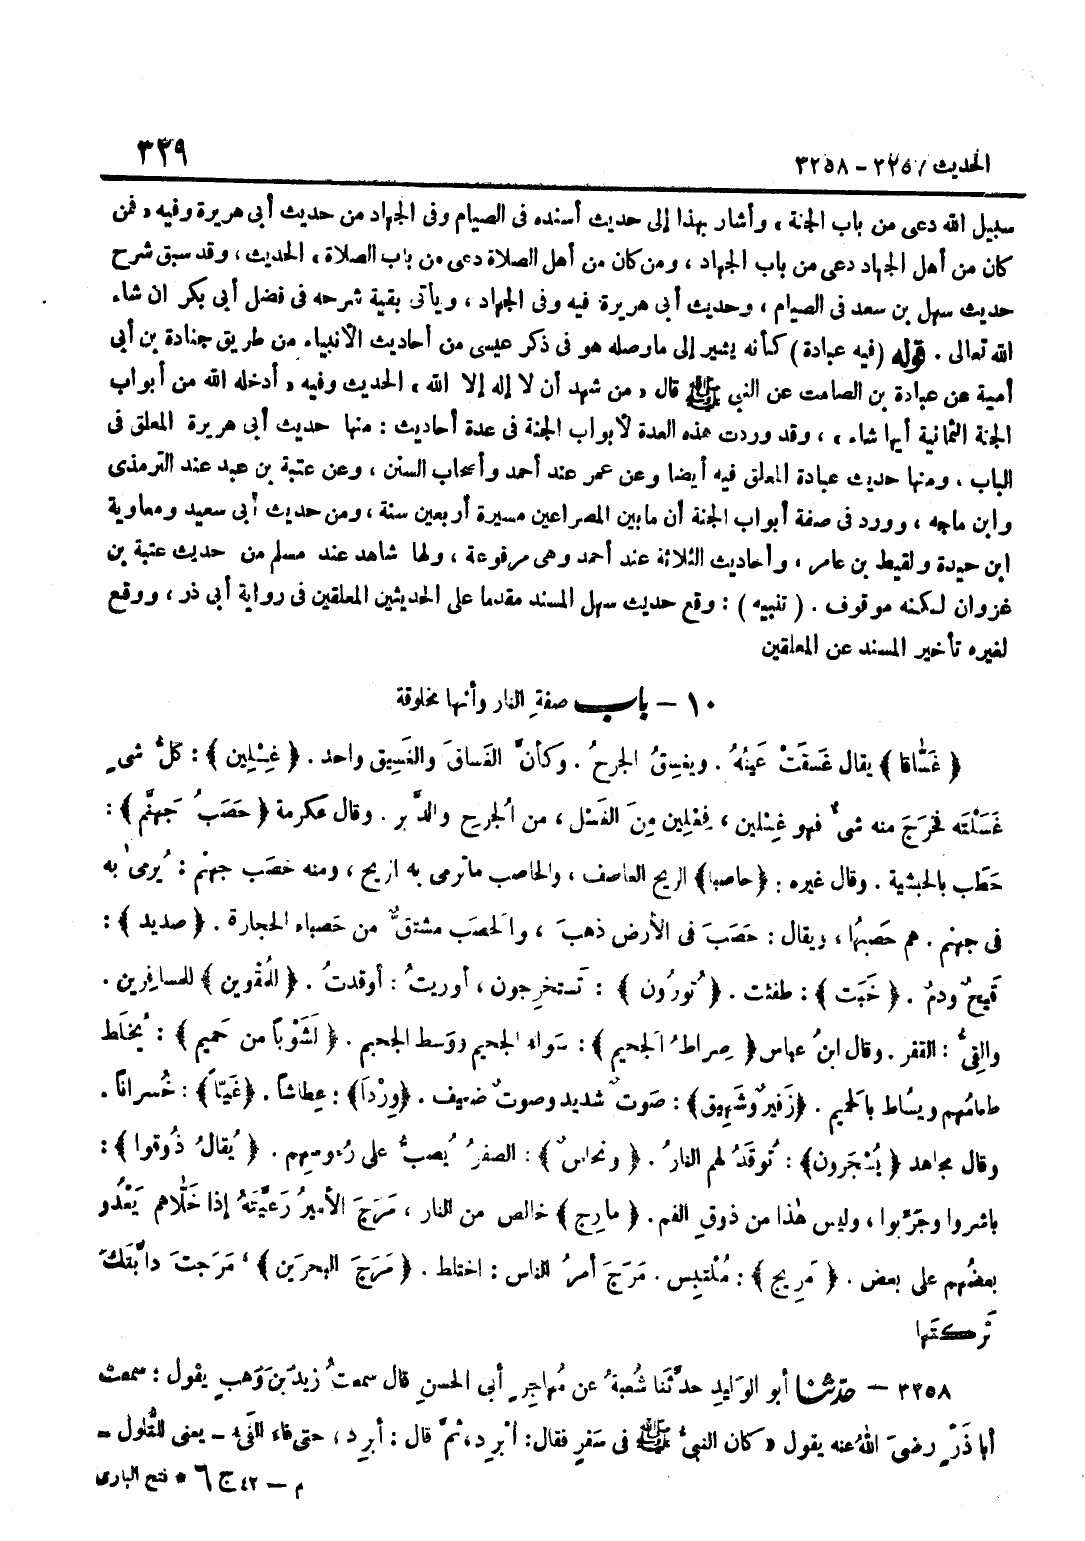 الحديث / ٣٢٥٧ - ٣٢٥٨
٣٢٩
سبيل الله دعى من باب الجنة ، وأشار بهذا إلى حديث أسنده فى الصيام وفى الجهاد من حديث أبى هريرة وفيه « فمن
كان من أهل الجهاد دعى من باب الجهاد ، ومن كان من أهل الصلاة دعى من باب الصلاة ، الحديث ، وقد سبق شرح
حديث سهل بن سعد فى الصيام ، وحديث أبى هريرة فيه وفى الجهاد ، ويأتى بقية شرحه فى فضل أبى بكر ان شاء
الله تعالى . قوله ( فيه عبادة ) كأنه يشير إلى ما وصله هو فى ذكر عيسى من أحاديث الأنبياء من طريق جنادة بن أبى
أمية عن عبادة بن الصامت عن النبى ﷺ قال « من شهد أن لا إله إلا الله ، الحديث وفيه « أدخله الله من أبواب
الجنة الثمانية أيها شاء » ، وقد وردت هذه العدة لأبواب الجنة فى عدة أحاديث : منها حديث أبى هريرة المعلق فى
الباب ، ومنها حديث عبادة المعلق فيه أيضا وعن عمر عند أحمد وأصحاب السنن ، وعن عتبة بن عبد عند الترمذى
وابن ماجه ، وورد فى صفة أبواب الجنة أن ما بين المصراعين مسيرة أربعين سنة ، ومن حديث أبى سعيد ومعاوية
ابن حيدة ولقيط بن عامر ، وأحاديث الثلاثة عند أحمد وهى مرفوعة ، ولها شاهد عند مسلم من حديث عتبة بن
غزوان لكنه موقوف . ( تنبيه ) : وقع حديث سهل المسند مقدما على الحديثين المعلقين فى رواية أبى ذر ، ووقع
لغيره تأخير المسند عن المعلقين
١٠ - باب صفةِ النار وأنها مخلوقة
﴿ غَسَّاقا ﴾ يقال غَسقَتْ عَينُهُ . ويغسِقُ الجرحُ . وكأنَّ الغَساقَ والغَسِيق واحد . ﴿ غِسْلِين ﴾ : كلُّ شىء
غَسَلْتَه فخرَجَ منه شىءٌ فهو غِسْلين ، فِعْلِين مِنَ الغَسْل ، من الُجرحِ والدَّبر . وقال عكرمة ﴿ حَصَبُ جَهنَّم ﴾ :
حَطَب بالحبشية . وقال غيره : ﴿ حاصبا ﴾ الريح العاصف ، والحاصب ما ترمى به الريح ، ومنه حَصَب جهنم : يُرمىٰ به
فى جهنم . هم حَصبُها ، ويقال : حَصَبَ فى الأرض ذهبَ ، والحصَب مشتقٌّ من حَصباء الحجارة . ﴿ صديد ﴾ :
قَيحٌ ودمٌ . ﴿ خَبَت ﴾ : طفئت . ﴿ تُورُون ﴾ : تَستخرِجون ، أوريتُ : أوقدتُ . ﴿ للمُقْوين ﴾ للمسافِرين .
والقِىُّ : القفر . وقال ابنُ عباس ﴿ صِراطُ الجحيم ﴾ : سَواء الجحيم ووَسط الجحيم . ﴿ لَشَوْباً من حَميم ﴾ : يُخلَط
طعامُهم ويسُاط بالحَميم . ﴿ زَفيرٌ وشَهِيق ﴾ : صَوتٌ شديد وصوتٌ ضَعيف . ﴿ وِرْداً ﴾ : عِطاشاً . ﴿ غَيّاً ﴾ : خُسراناً .
وقال مجاهد ﴿ يُسْجَرون ﴾ : تُوقَدُ لهم النارُ . ﴿ ونحاسٌ ﴾ : الصفرُ يُصبُّ على رُءوسِهم . ﴿ يُقالُ ذُوقوا ﴾ :
باشروا وجرِّبوا ، وليس هٰذا من ذوقِ الفم . ﴿ مارِج ﴾ خالص من النار ، مَرَجَ الأميرُ رَعيَّتَهُ إذا خَلّاهم يَعْدُو
بعضُهم على بعض . ﴿ مَرِيج ﴾ : مُلْتبِس . مَرَجَ أمرُ الناس : اختلط . ﴿ مَرَجَ البحرَين ﴾ ، مَرَجتَ دابَّتكَ
تَركتَها
٣٢٥٨ - حدثنا أبو الوَليدِ حدَّثَنا شُعبةُ عن مُهاجِرٍ أبى الحسنِ قال سمعتُ زيدَ بنَ وَهبٍ يقول : سمعت
أبا ذَرٍّ رضىَ اللهُ عنه يقول « كان النبىُّ ﷺ فى سَفرٍ فقال : أبْرِد ، ثمَّ قال : أبرِد ، حتى فاء الفَىء - يعنى للتُّلول -
م - ٤٢ ج ٦ * فتح البارى